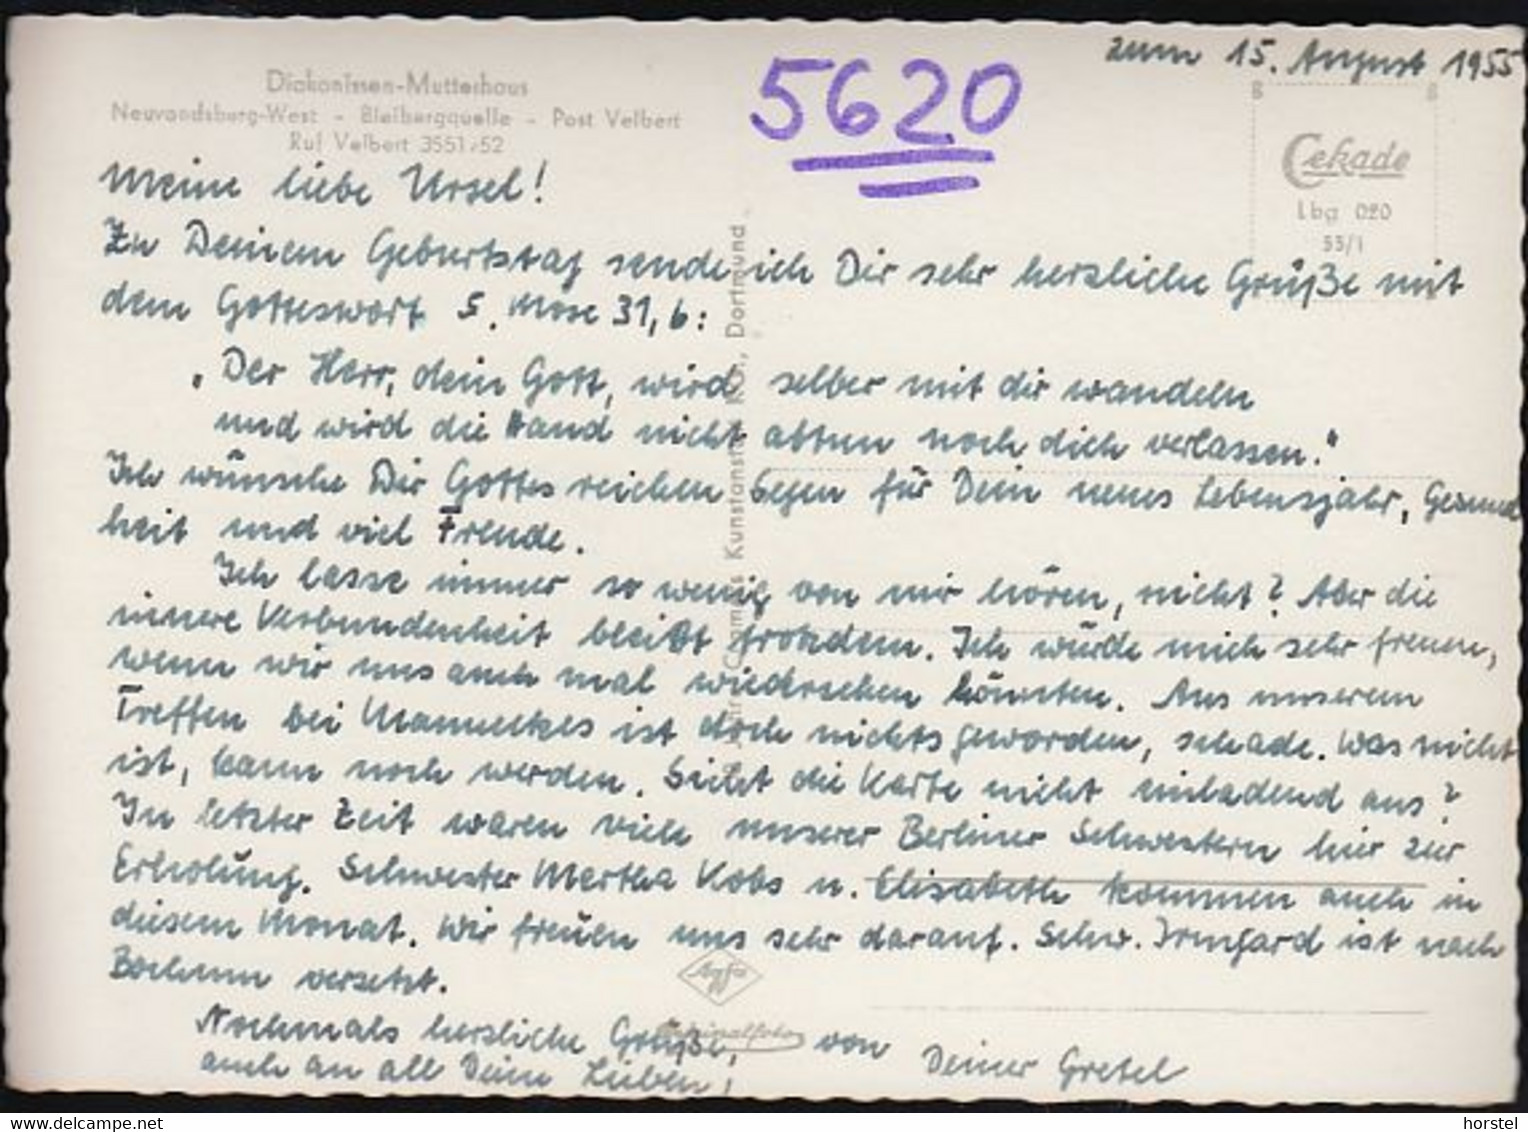 zum 15. August 1955
Diakonissen-Mutterhaus
Neuvandsburg-West - Bleibergquelle - Post Velbert
Ruf Velbert 3551/52
5620
Cekade
Lbg 020
55/1
Meine liebe Ursel!
Zu Deinem Geburtstag sende ich Dir sehr herzliche Grüße mit
dem Gotteswort 5. Mose 31,6:
„Der Herr, dein Gott, wird selber mit dir wandeln
und wird die Hand nicht abtun noch dich verlassen."
Ich wünsche Dir Gottes reichen Segen für Dein neues Lebensjahr, Gesund
heit und viel Freude.
Ich lasse immer so wenig von mir hören, nicht? Aber die
innere Verbundenheit bleibt trotzdem. Ich würde mich sehr freuen,
wenn wir uns auch mal wiedersehen könnten. Aus unserem
Treffen bei Manneckes ist doch nichts geworden, schade. Was nicht
ist, kann noch werden. Sieht die Karte nicht einladend aus?
In letzter Zeit waren viele unserer Berliner Schwestern hier zur
Erholung. Schwester Martha Kobs u. Elisabeth kommen auch in
diesem Monat. Wir freuen uns sehr darauf. Schw. Irmgard ist nach
Bochum versetzt.
Nochmals herzliche Grüße, von Deiner Gretel
auch an all Deine Lieben,
Kunstanstalt Dortmund
Agfa
Originalfoto
www.delcampe.net
horstel